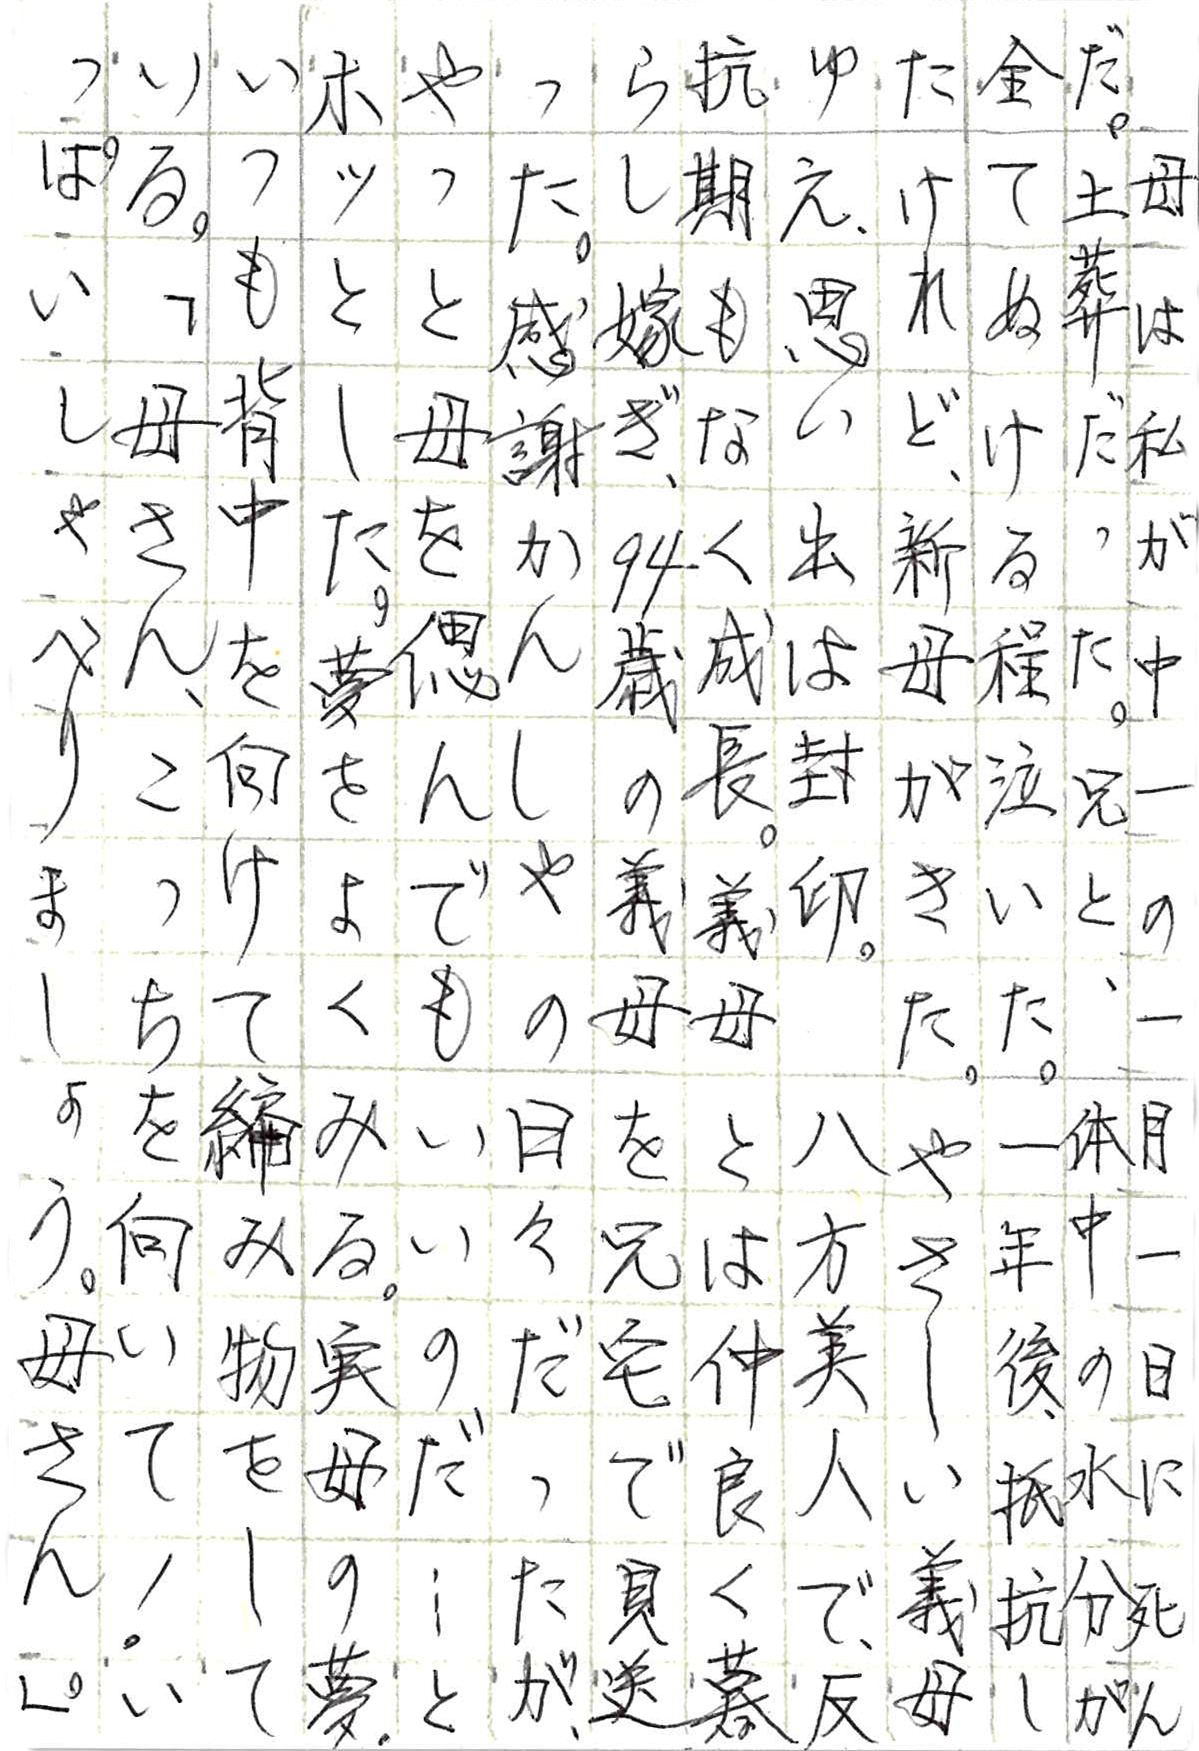 母は私が中一の一月一日に死ん
だ。土葬だった。兄と、体中の水分が
全てぬける程泣いた。一年後、抵抗し
たけれど、新母がきた。やさしい義母
ゆえ、思い出は封印。八方美人で、反
抗期もなく成長。義母とは仲良く暮
らし嫁ぎ、94歳の義母を兄宅で見送
った。感謝かんしゃの日々だったが、
やっと母を偲んでもいいのだ…と
ホッとした。夢をよくみる。実母の夢。
いつも背中を向けて編み物をして
いる。「母さん、こっちを向いて！い
っぱいしゃべりましょう。母さん」。